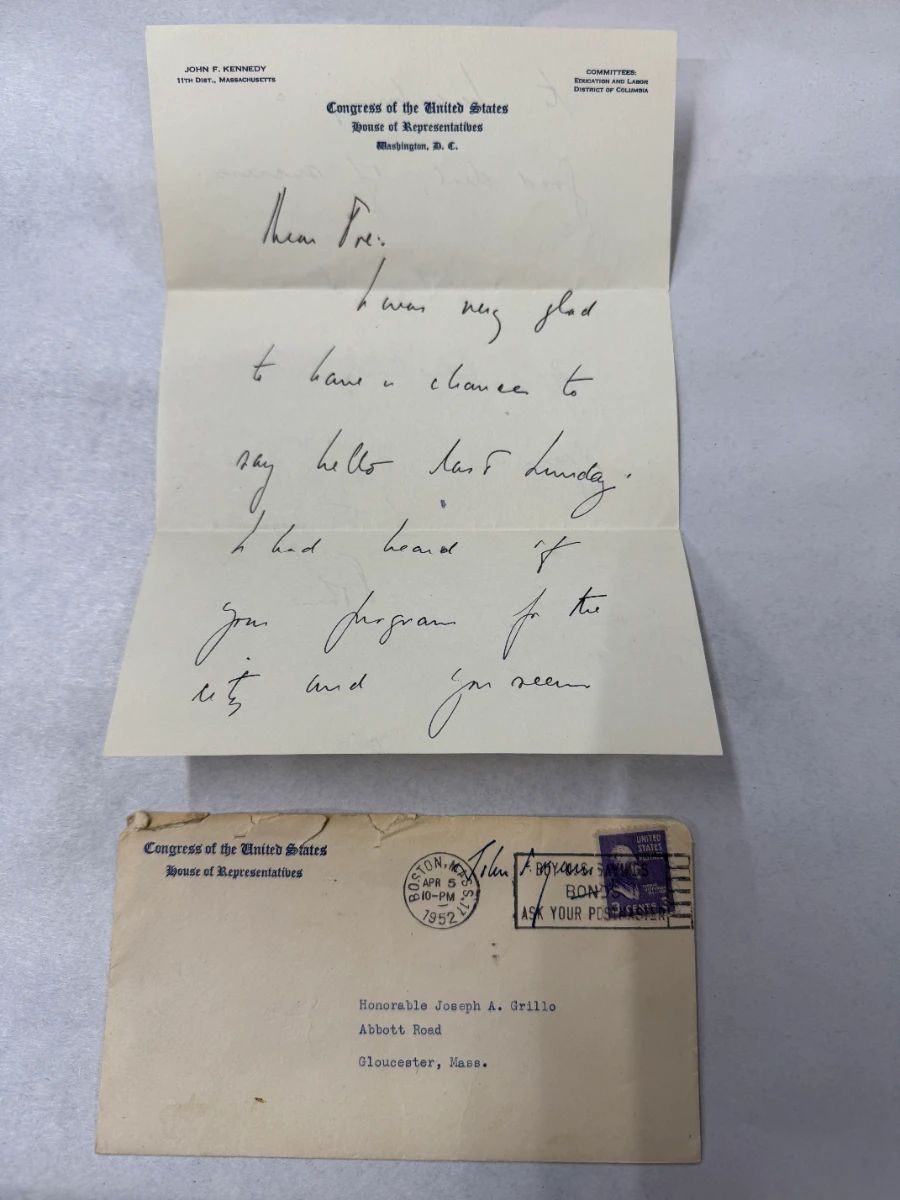 JOHN F. KENNEDY
11TH DIST., MASSACHUSETTS
COMMITTEES:
EDUCATION AND LABOR
DISTRICT OF COLUMBIA
Congress of the United States
House of Representatives
Washington, D. C.
Dear
I was very glad
to have a chance to
say hello last Sunday.
I had heard of
your program for the
city and you seem
Congress of the United States
House of Representatives
BOSTON, MASS. 17
APR 5
10-PM
1952
John
BUY U.S. SAVINGS
BONDS
ASK YOUR POSTMASTER
UNITED
STATES
POSTAGE
3 CENTS 3
Honorable Joseph A. Grillo
Abbott Road
Gloucester, Mass.